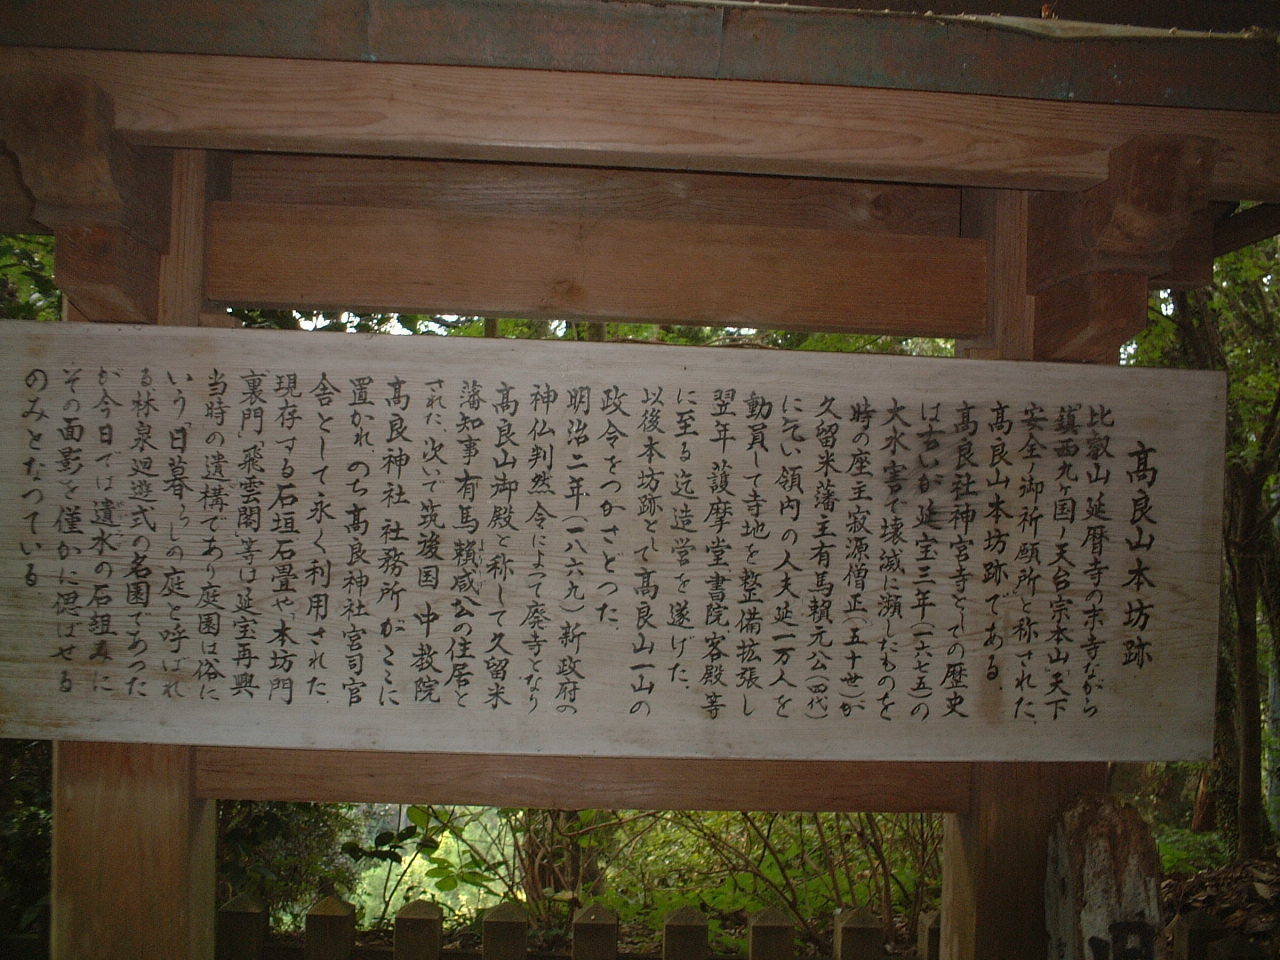 高良山本坊跡
比叡山延暦寺の末寺ながら
「鎮西九ヶ国ノ天台宗本山」「天下
安全ノ御祈願所」と称された、
高良山本坊跡である。
高良社神宮寺としての歴史
は古いが延宝三年(一六七五)の
大水害で壊滅に瀕したものを
時の座主寂源僧正(五十世)が
久留米藩主有馬頼元公(四代)
に乞い領内の人夫延一万人を
動員して寺地を整備拡張し
翌年護摩堂書院客殿等
に至る迄造営を遂げた。
以後本坊跡として高良山一山の
政令をつかさどった。
明治二年(一八六九)新政府の
神仏判然令によって廃寺となり
高良山御殿と称して久留米
藩知事有馬頼咸公の住居と
された、次いで筑後国中教院
高良神社社務所がここに
置かれ、のち高良神社宮司官
舎として永く利用された。
現存する石垣石畳や「本坊門」
「裏門」「飛雲閣」等は延宝再興
当時の遺構であり庭園は俗に
いう「日暮らしの庭」と呼ばれ
る、林泉廻遊式の名園であった
が今日では遣水の石組みに
その面影を僅かに偲ばせる
のみとなっている